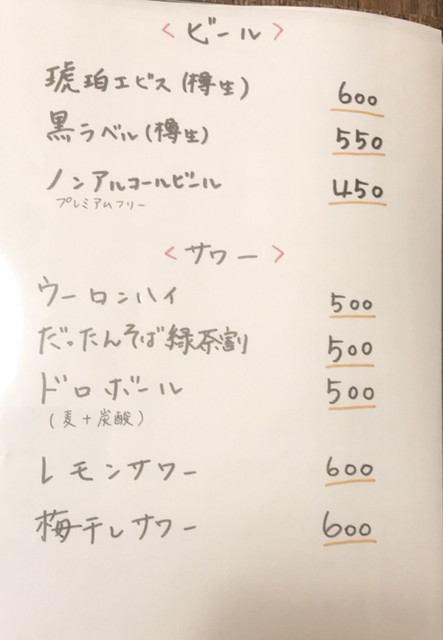 ＜ビール＞
琥珀エビス(樽生) 600
黒ラベル(樽生) 550
ノンアルコールビール 450
プレミアムフリー
＜サワー＞
ウーロンハイ 500
だったんそば緑茶割 500
ドロボール 500
(麦+炭酸)
レモンサワー 600
梅干しサワー 600